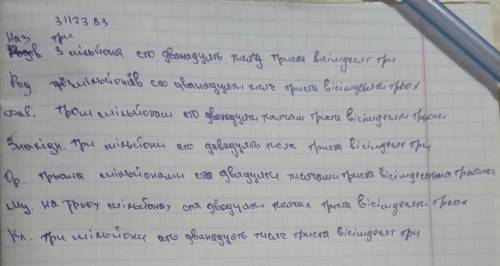 3112383
Наз три
3 мільйона сто дванадцять тисяч триста вісімдесят три
Род мільйонів сто дванадцяти тисяч триста вісімдесяти трьох
Дав. трьом мільйонам сто дванадцяти тисячам триста вісімдесяти трьом
Знахідн. три мільйони сто двадцять тисяч триста вісімдесят три
Ор. трьома мільйонами ста двадцяти тисячами триста вісімдесятьма трьома
Му. на трьох мільйонах ста двадцяти тисячах триста вісімдесяти трьох
Кл. три мільйони сто дванадцять тисяч триста вісімдесят три